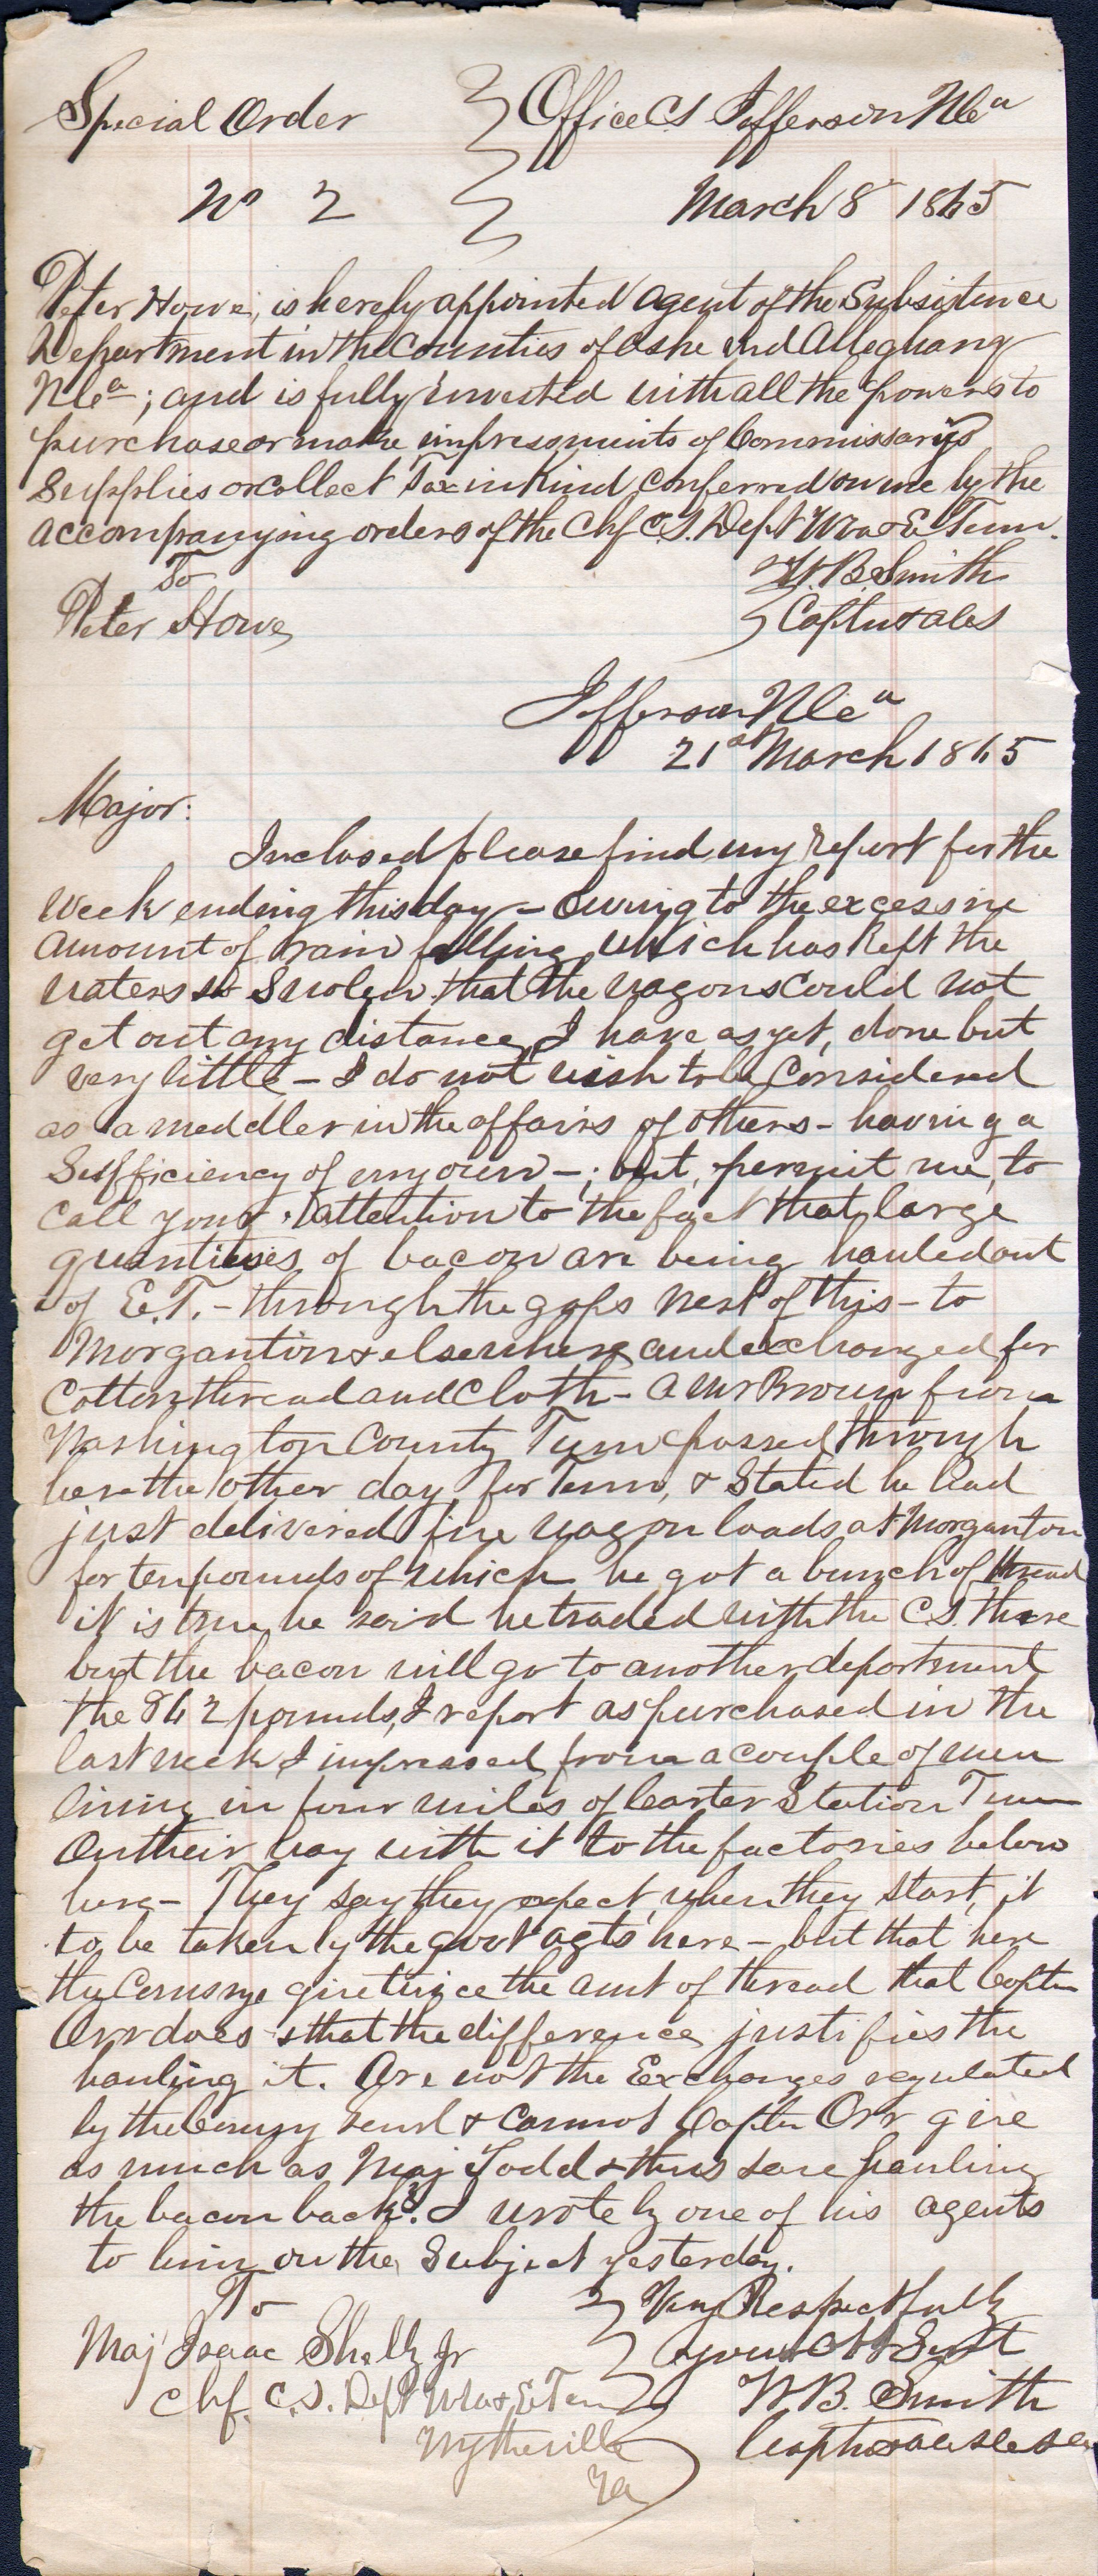 Special Order } Office CS Jefferson NCa
No 2 } March 8 1865
Peter Howe, is hereby appointed agent of the Subsistence
Department in the Counties of Ashe and Alleghany
NCa; and is fully invested with all the powers to
purchase or make impressments of Commissarys
Supplies or collect Tax in Kind conferred on me by the
accompanying orders of the Chf C.S. Dept Wva & E Tenn.
To W.B. Smith
Peter Howe } Capt &
Jefferson NCa
21st March 1865
Major:
Inclosed please find my report for the
week ending this day – Owing to the excessive
amount of rain falling which has kept the
waters so swolen that the wagons could not
get out any distance, I have as yet, done but
very little – I do not wish to be considered
as a meddler in the affairs of others – having a
Sufficiency of my own –; but, permit me, to
call your attention to the fact that large
quantities of bacon are being hauled out
of E.T. – through the gaps west of this – to
Morganton & elsewhere and exchanged for
Cotton thread and Cloth – a Mr Brown from
Washington County Tenn passed through
here the other day for Tenn, & Stated he had
just delivered five wagon loads at Morganton
for ten pounds of which he got a bunch of thread
it is true he said he traded with the C.S. there
but the bacon will go to another department
the 862 pounds, I report as purchased in the
last week I impressed from a couple of men
living in four miles of Carter Station Tenn
On their way with it to the factories below
here – They say they expect, when they start, it
to be taken by the govt agts here – but that here
the give twice the amt of thread that Captn
Orr does & that the difference justifies the
hauling it. Are not the Exchanges regulated
by the Genl & cannot Captn Orr give
as much as Maj Todd & thus save hauling
the bacon back? I wrote by one of his agents
to him on the Subject yesterday.
To } Very Respectfully
Maj Isaac Shelby Jr } your Obt Svt
Chf. C.S. Dept Wva & E Ten } W B. Smith
Wytheville } Capt &
Va